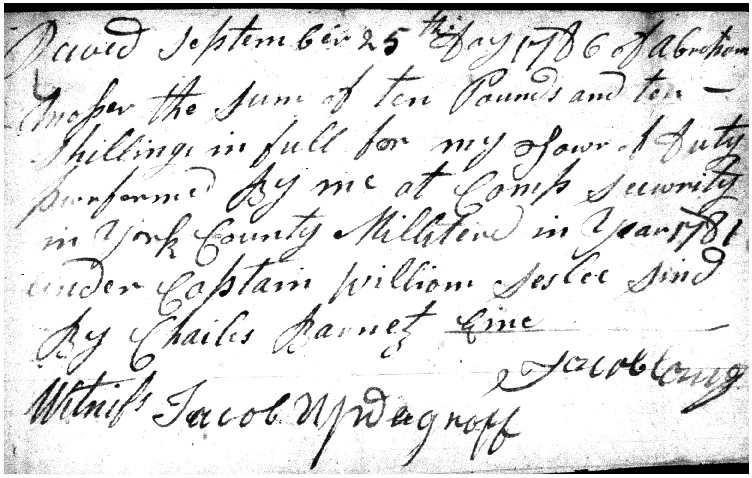 Receved September 25th Day 1786 of Abraham
Mosser the Sum of ten Pounds and ten —
Shillings in full for my Towr of Duty
purformed By me at Camp Security
in York County Millitere in Year 1781
under Captain William Seslee Sind
By Charles Barnetz Eine
Jacob Long
Witness Jacob Updegroff